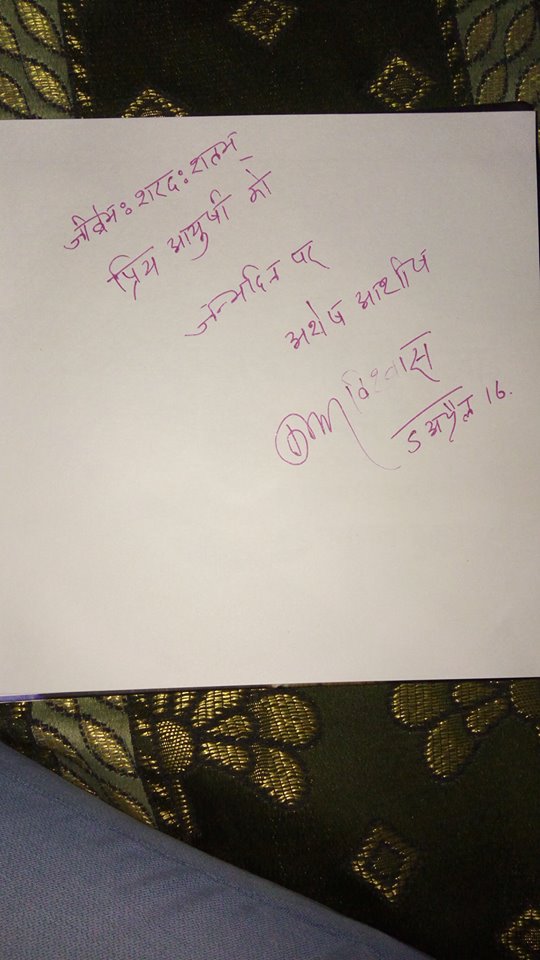 जीवेमः शरदः शतम्
प्रिय आयुषी को
जन्मदिन पर
अशेष आशीष
विश्वास
5 अप्रैल 16.